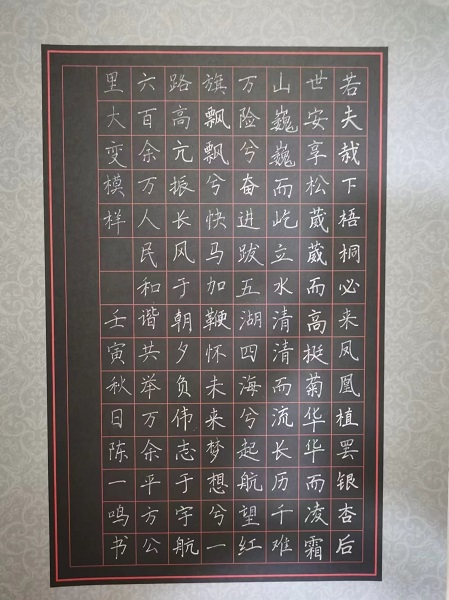 若夫栽下梧桐必来凤凰植罢银杏后
世安享松葳葳而高挺菊华华而凌霜
山巍巍而屹立水清清而流长历千难
万险兮奋进跋五湖四海兮起航望红
旗飘飘兮快马加鞭怀未来梦想兮一
路高亢振长风于朝夕负伟志于宇航
六百余万人民和谐共举万余平方公
里大变模样 壬寅秋日陈一鸣书